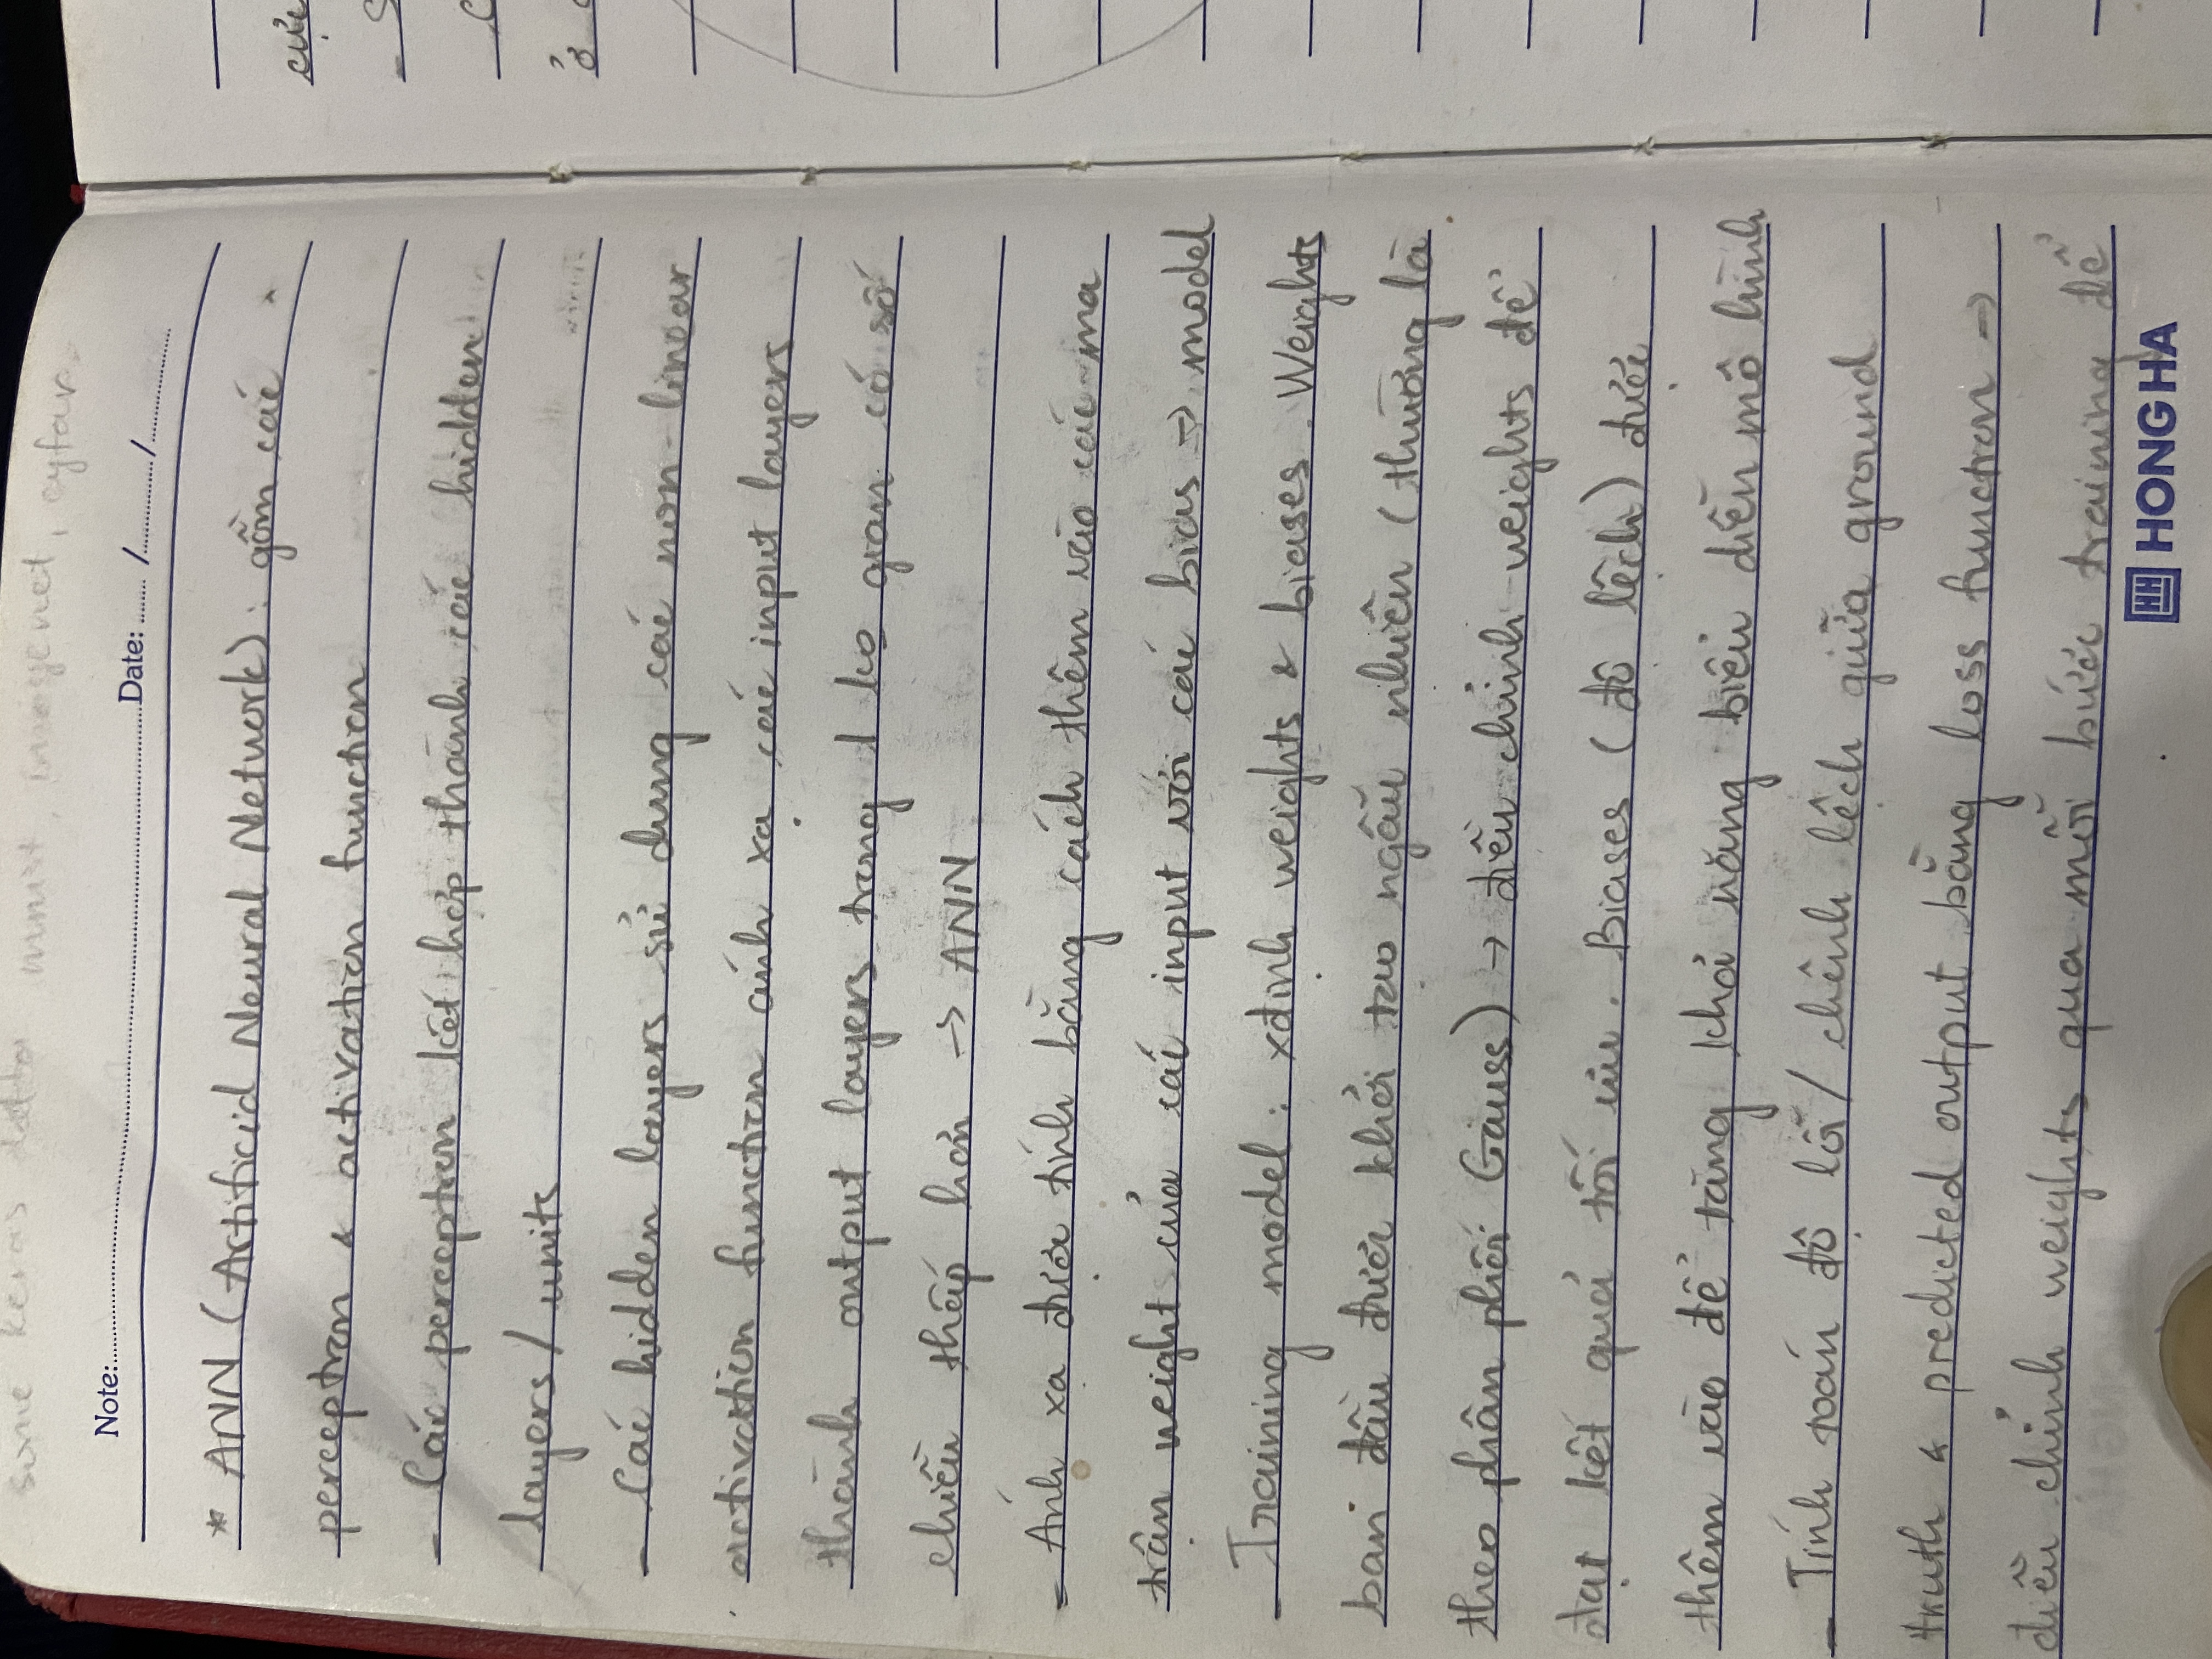 some keras data mnist, imagenet, cyfar.
Note: Date: / /
* ANN (Artificial Neural Network): gồm các
perceptron & activation function
- Các perceptron kết hợp thành các hidden
layers / units
- Các hidden layers sử dụng các non-linear
activation function ánh xạ các input layers
thành output layers trong 1 ko gian có số
chiều thấp hơn → ANN
- Ánh xạ được tính bằng cách thêm vào các ma
trận weight của các input với các bias → model
- Training model: xđịnh weights & biases. Weights
ban đầu được khởi tạo ngẫu nhiên (thường là
theo phân phối Gauss) → điều chỉnh weights để
đạt kết quả tối ưu. Biases (độ lệch) được
thêm vào để tăng khả năng biểu diễn mô hình
- Tính toán độ lỗi / chênh lệch giữa ground
truth & predicted output bằng loss function →
điều chỉnh weights qua mỗi bước training để
HH HONG HA
- S
ở